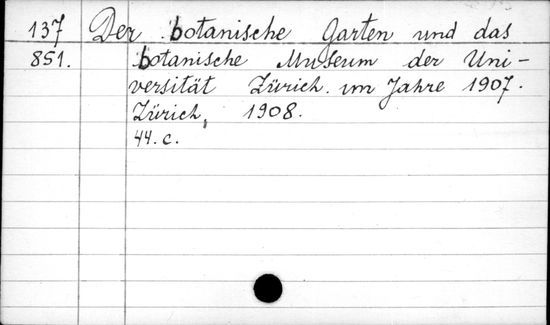 137 Der botanische Garten und das
851. botanische Museum der Uni-
versität Zürich im Jahre 1907.
Zürich, 1908.
44. c.